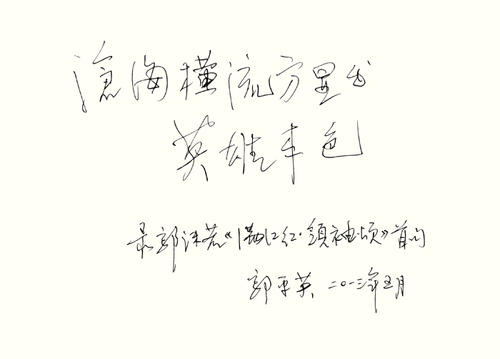 滄海橫流方显出
英雄本色
录郭沫若《满江红·領袖颂》首句
郭平英 二〇一三年五月